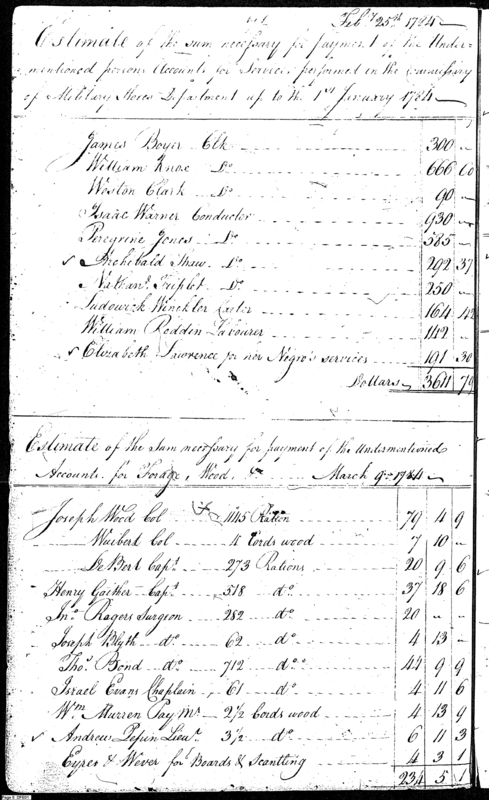 Feby 25th 1784
Estimate of the sum necessary for payment of the Under-
mentioned persons Accounts for Services performed in the Commissary
of Military Stores Department up to the 1st January 1784
James Boyer Clk 300 —
William Knox Do 666 60
Weston Clark Do 90 —
Isaac Warner Conductor 930 —
Peregrine Jones Do 585 —
✓ Archibald Shaw Do 292 37
Nathanl Triplet Do 250 —
Ludowick Winckler Carter 164 42
William Redden Labourer 142
✓ Elizabeth Lawrence for her Negro's services 191 30
Dollars 3611 79
Estimate of the Sum necessary for payment of the Undermentioned
Accounts for Forage, Wood, & March 9th 1784
Joseph Wood Col 1145 Ration 79 4 9
Weibert Col 4 Cords wood 7 10 —
De Bert Capt 273 Rations 20 9 6
Henry Gaither Capt 518 do 37 18 6
Jno Ragers Surgeon 282 do 20 —
Joseph Blyth do 62 do 4 13 —
Thos Bond do 712 do 44 9 9
Israel Evans Chaplain 61 do 4 11 6
Wm Murren Pay Mr 2½ Cords wood 4 13 9
✓ Andrew Pepin Lieut 3½ do 6 11 3
Eyres & Wever for Boards & Scantling 4 3 1
234 5 1